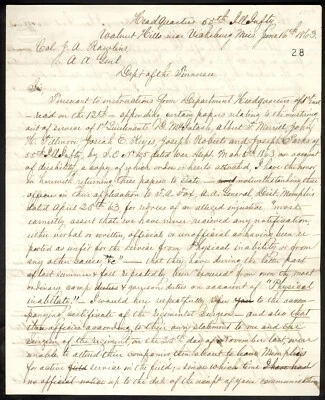 Headquarters 55th Ill Infty
Walnut Hills near Vicksburg Miss June 16th 1863
28
Col. J. A. Rawlins
A. A. Genl
Dept of the Tennessee
Sir
Pursuant to instructions from Department Headquarters of
read on the 12th - appending certain papers relating to the mustering
out of service of 1st Lieutenants D. McIntosh, Albert F. Merrill, John
H. Fillmon, Josiah E. Keyes, Joseph Roberts and Joseph Parks of
55th Ill Infty, by S.O. No 65 dated War Dept. March 6th 1863 on account
of disability, a copy of which order is hereto attached, I have the
honor in herewith returning these papers to state
officers in their application to A. A. General Genl. Memphis
dated April 28th 63 for redress of an alleged injustice "most
earnestly assert that we have never received any notification,
either verbal or written, official or unofficial as having been re-
ported as unfit for the service from Physical inability or from
any other cause &c" - that they have during the latter part
of last summer & fall repeatedly been excused from even the most
ordinary camp duties & garrison duties on account of "Physical
inability." I would here respectfully refer to the accom-
panying certificate of the regimental surgeon - and also that
the officers according to their own statement to me and the
surgeon of the regiment on the 25th day of November last were
unable to attend their companies then about to leave Memphis
for active field service in the field; - since which time I have had
no official notice up to the date of the receipt of your communication